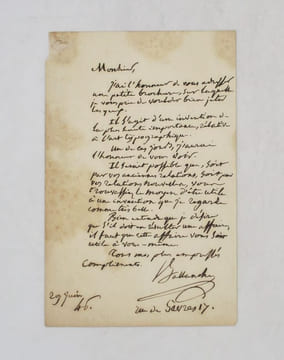 Monsieur,
J'ai l'honneur de vous adresser
une petite brochure sur laquelle
je vous prie de vouloir bien jeter
les yeux.
Il s'agit d'une invention de
la plus haute importance, relative
à l'art typographique.
Un de ces jours, j'aurai
l'honneur de vous voir.
Il serait possible que, soit
par vos anciennes relations, soit par
vos relations nouvelles, vous
trouvassiez le moyen d'être utile
à une invention que je regarde
comme très belle.
Bien entendu que je désire
que s'il doit en résulter une affaire,
il faut que cette affaire vous soit
utile à vous-même
Tous mes plus empressés
compliments.
Ballanche
29 juin
46.
rue de Sèvres 17.